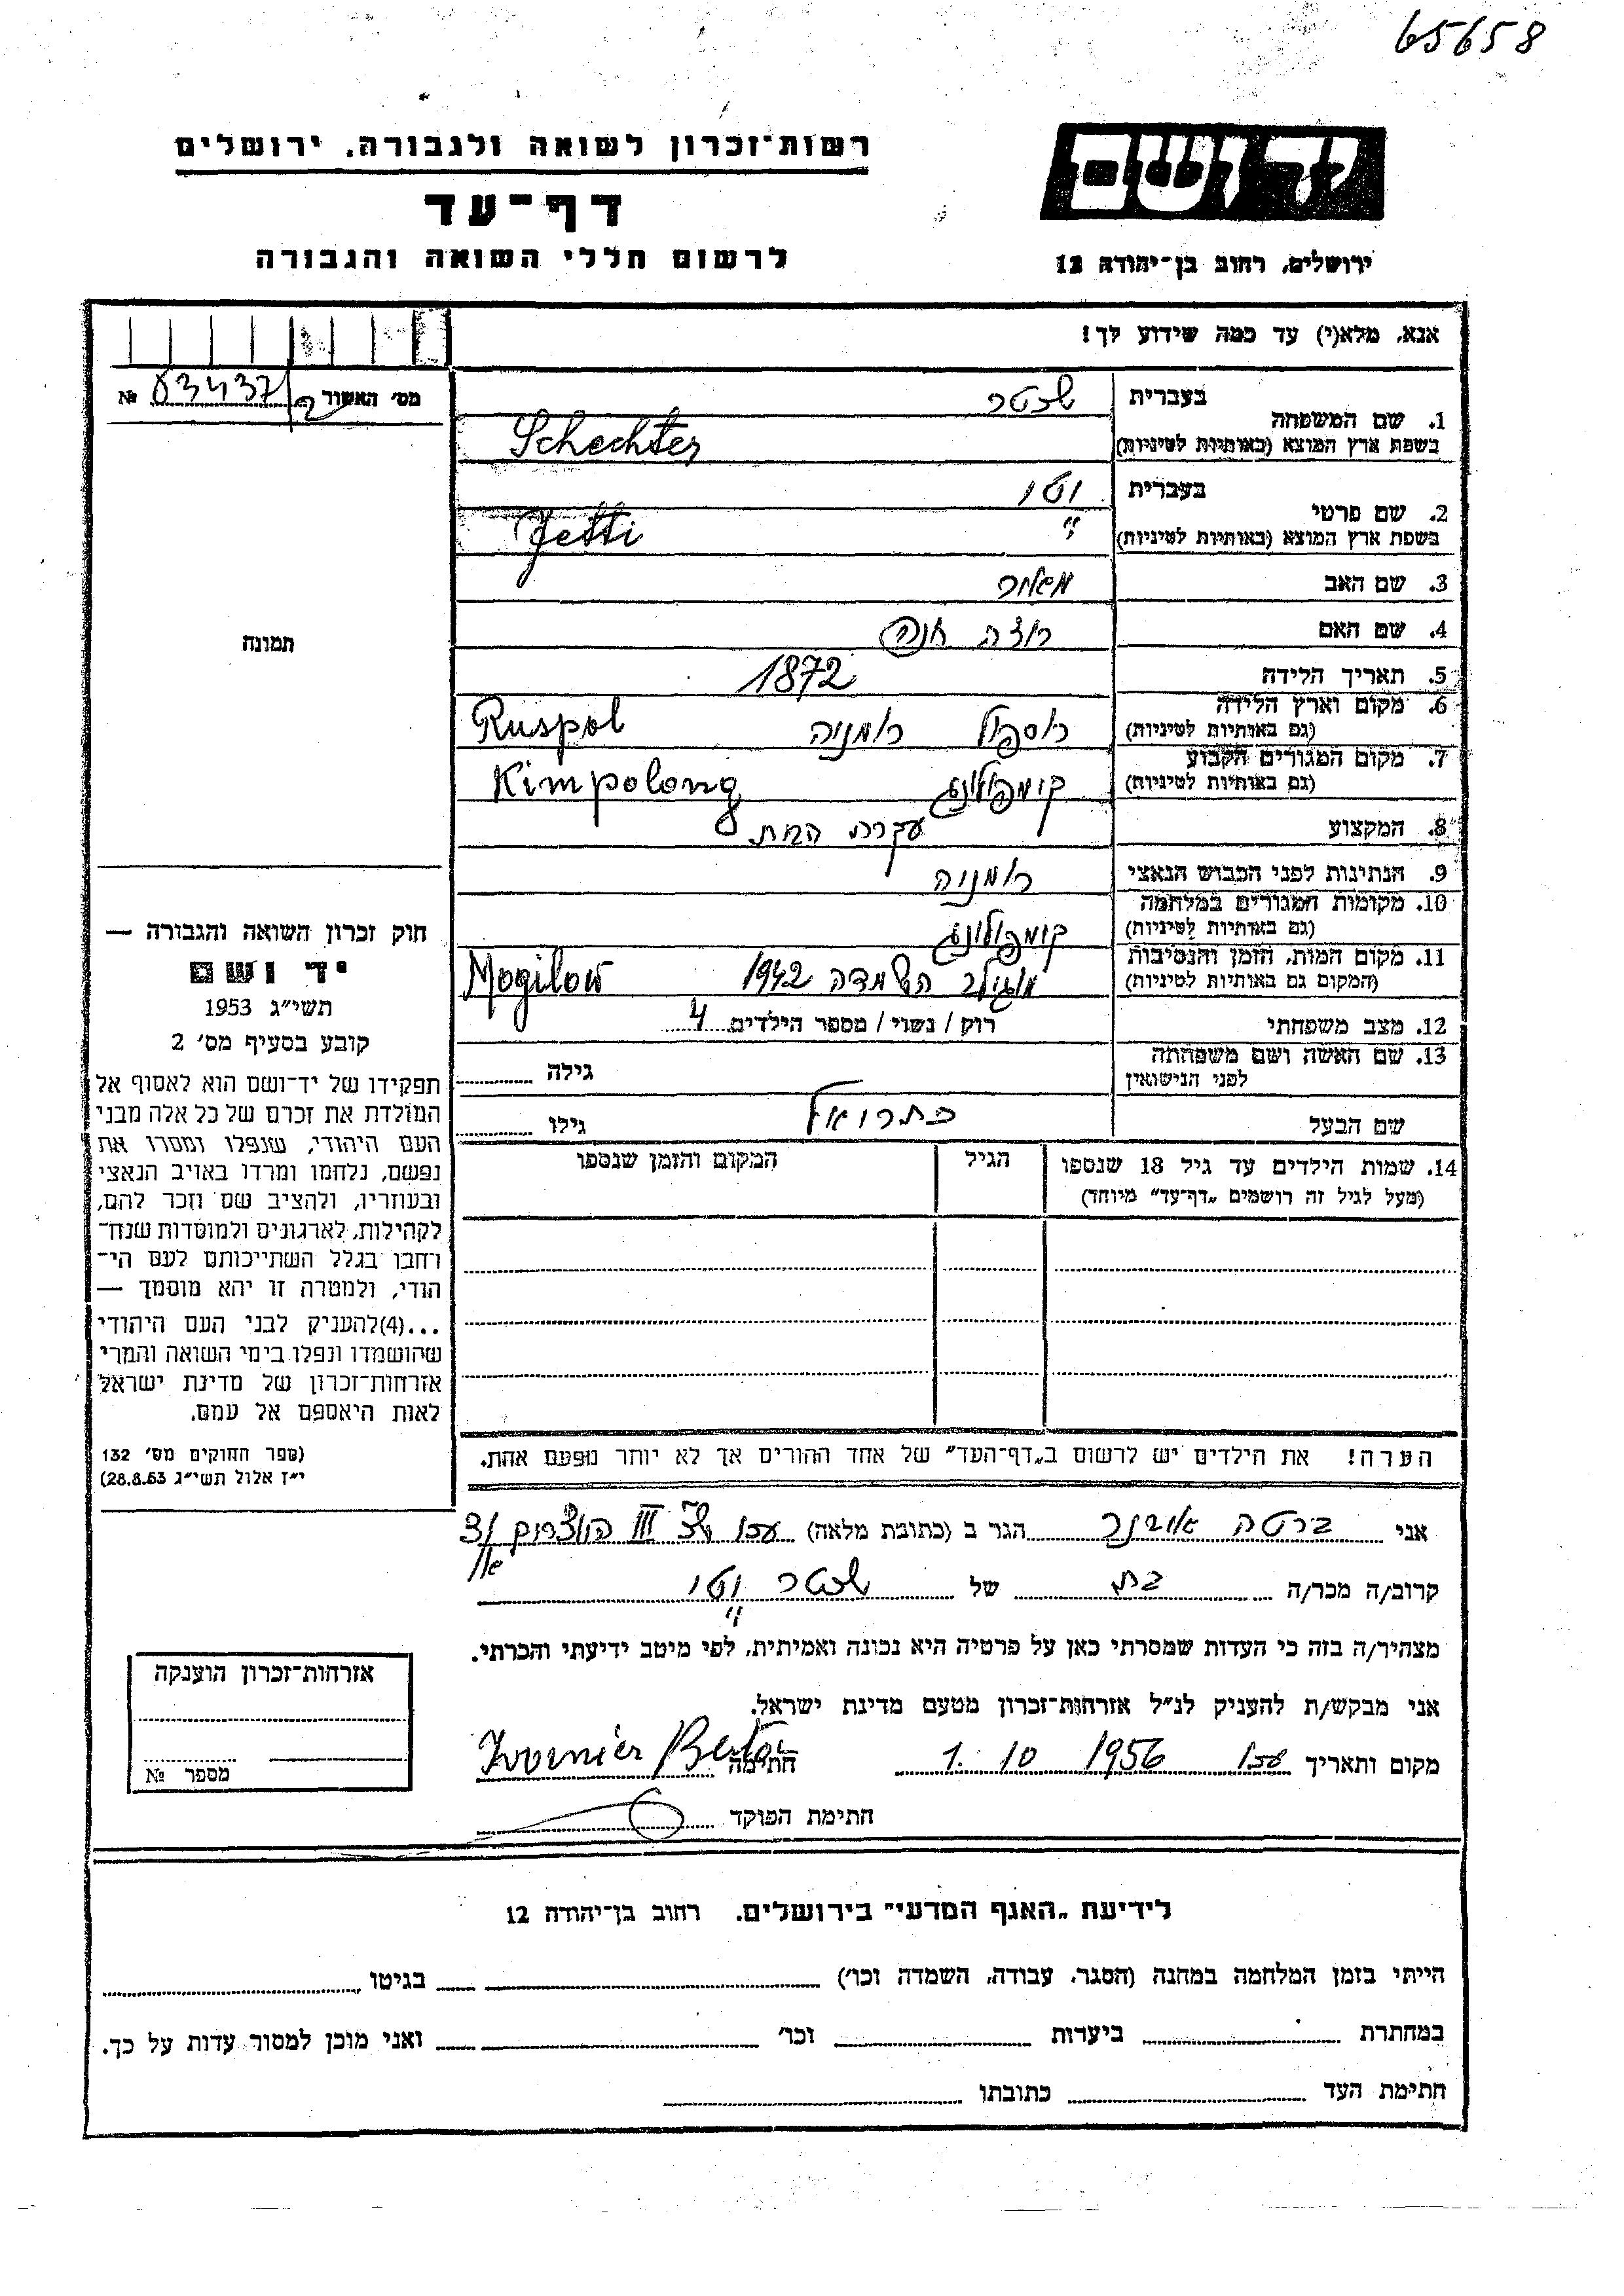 65658
רשות־זכרון לשואה ולגבורה, ירושלים
דף־עד
לרשום חללי השואה והגבורה
יד ושם
ירושלים, רחוב בן־יהודה 12
אנא, מלא(י) עד כמה שידוע לך!
מס׳ האשור № 03437
בעברית שכטר
1. שם המשפחה
בשפת ארץ המוצא (באותיות לטיניות) Schechter
בעברית יטי
2. שם פרטי
בשפת ארץ המוצא (באותיות לטיניות) Jetti
3. שם האב מאיר
4. שם האם רוזה חנה
5. תאריך הלידה 1872
6. מקום וארץ הלידה רוספול רומניה Ruspol
(גם באותיות לטיניות)
7. מקום המגורים הקבוע קימפולונג Kimpolong
(גם באותיות לטיניות)
8. המקצוע עקרת הבית
9. הנתינות לפני הכבוש הנאצי רומניה
10. מקומות המגורים במלחמה קימפולונג
(גם באותיות לטיניות)
11. מקום המות, הזמן והנסיבות מוגילב השמדה 1942 Mogilow
(המקום גם באותיות לטיניות)
12. מצב משפחתי רוק / נשוי / מספר הילדים 4
13. שם האשה ושם משפחתה
לפני הנישואין גילה
שם הבעל גילו
14. שמות הילדים עד גיל 18 שנספו
(מעל לגיל זה רושמים „דף־עד” מיוחד)
הגיל
המקום והזמן שנספו
תמונה
חוק זכרון השואה והגבורה —
יד ושם
תשי״ג 1953
קובע בסעיף מס׳ 2
תפקידו של יד־ושם הוא לאסוף אל
המולדת את זכרם של כל אלה מבני
העם היהודי, שנפלו ומסרו את
נפשם, נלחמו ומרדו באויב הנאצי
ובעוזריו, ולהציב שם וזכר להם,
לקהילות, לארגונים ולמוסדות שנח־
רחבו בגלל השתייכותם לעם הי־
הודי, ולמטרה זו יהא מוסמך —
...(4)להעניק לבני העם היהודי
שהושמדו ונפלו בימי השואה והמרי
אזרחות־זכרון של מדינת ישראל
לאות היאספם אל עמם.
(ספר החוקים מס׳ 132
י״ז אלול תשי״ג 28.8.53)
הערה! את הילדים יש לרשום ב„דף־העד” של אחד ההורים אך לא יותר מפעם אחת.
אני ברטה הגר ב (כתובת מלאה) עכו III
קרוב/ה מכר/ה בת של שכטר יטי
מצהיר/ה בזה כי העדות שמסרתי כאן על פרטיה היא נכונה ואמיתית, לפי מיטב ידיעתי והכרתי.
אני מבקש/ת להעניק לנ״ל אזרחות־זכרון מטעם מדינת ישראל.
מקום ותאריך עכו 1. 10 1956 חתימה Berta
חתימת הפוקד
אזרחות־זכרון הוענקה
מספר №
לידיעת „האגף המדעי” בירושלים, רחוב בן־יהודה 12
הייתי בזמן המלחמה במחנה (הסגר, עבודה, השמדה וכו׳) בגיטו
במחתרת ביערות וכו׳ ואני מוכן למסור עדות על כך.
חתימת העד כתובתו